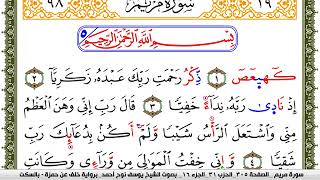 ١٩ سورة مريم ٩٨
بِسْمِ اللَّهِ الرَّحْمَٰنِ الرَّحِيمِ
كٓهيعٓصٓ ١ ذِكْرُ رَحْمَتِ رَبِّكَ عَبْدَهُ زَكَرِيَّا ٢
إِذْ نَادَىٰ رَبَّهُ نِدَآءً خَفِيًّا ٣ قَالَ رَبِّ إِنِّي وَهَنَ الْعَظْمُ
مِنِّي وَاشْتَعَلَ الرَّأْسُ شَيْبًا وَلَمْ أَكُنْ بِدُعَآئِكَ رَبِّ
شَقِيًّا ٤ وَإِنِّي خِفْتُ الْمَوَالِيَ مِنْ وَرَآءِي وَكَانَتِ
سورة مريم . الصفحة ٣٠٥ . الحزب ٣١ . الجزء ١٦ . بصوت الشيخ يوسف نوح أحمد . برواية خلف عن حمزة - بالسكت